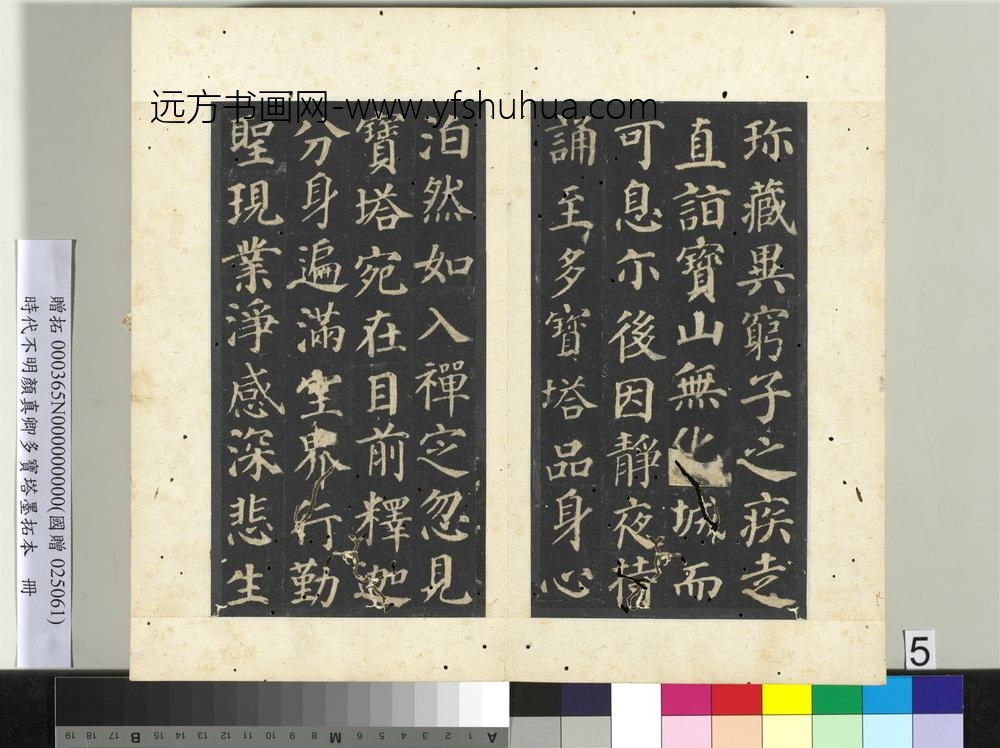 远方书画网-www.yfshuhua.com
珎藏異窮子之疾走
直詣寶山無化城而
可息尒後因靜夜持
誦至多寶塔品身心
泊然如入禪定忽見
寶塔宛在目前釋迦
分身遍滿空界行勤
聖現業淨感深悲生
贈拓 000365N000000000(國贈 025061)
時代不明顏真卿多寶塔墨拓本 冊
5
A 1 2 3 4 5 6 M 8 9 10 11 12 13 14 15 B 17 18 19